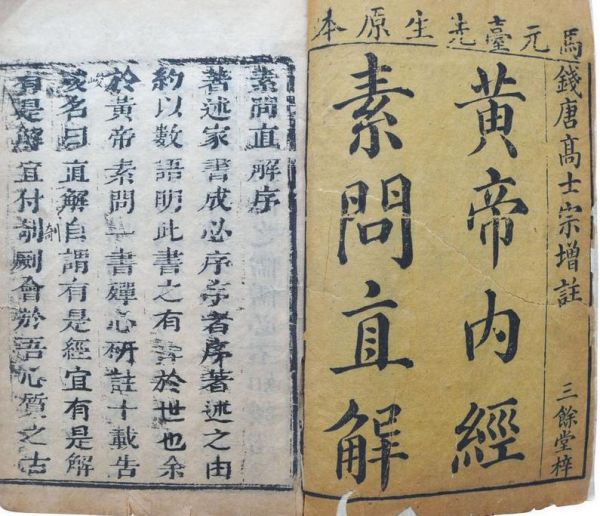 馬元臺先生原本
錢唐高士宗增註
三餘堂梓
黃帝內經
素問直解
素問直解序
著述家書成必序序者序著述之由
約以數語明此書之有於世也余
於黃帝素問一書殫心研註十載告
成名曰直解自謂有是經宜有是解
有是解宜付剞劂會於吾心質之古